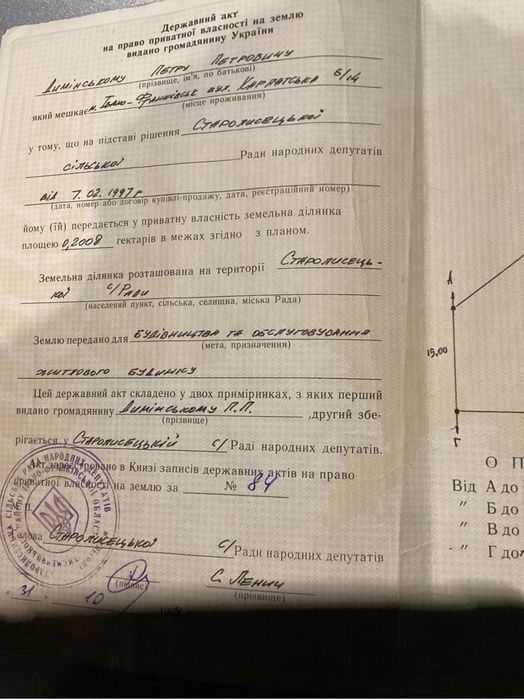 Державний акт
на право приватної власності на землю
видано громадянину України
Димінському Петру Петровичу
(прізвище, ім'я, по батькові)
який мешкає м. Івано-Франківськ вул. Карпатська 6/14
(місце проживання)
у тому, що на підставі рішення Старолисецької
сільської Ради народних депутатів
від 7.02.1997р
(дата, номер або договір купівлі-продажу, дата, реєстраційний номер)
йому (їй) передається у приватну власність земельна ділянка
площею 0,2008 гектарів в межах згідно з планом.
Земельна ділянка розташована на території Старолисець-
кої с/Ради
(населений пункт, сільська, селищна, міська Рада)
Землю передано для будівництва та обслуговування
(мета, призначення)
житлового будинку
Цей державний акт складено у двох примірниках, з яких перший
видано громадянину Димінському П.П. , другий збе-
(прізвище)
рігається у Старолисецькій с/ Раді народних депутатів.
Акт зареєстровано в Книзі записів державних актів на право
приватної власності на землю за № 84
М.П.
Голова Старолисецької с/ Ради народних депутатів
(підпис) С. Ленич
(прізвище)
31 10
А
15,00
Г
О П
Від А до
" Б до
" В до
" Г до